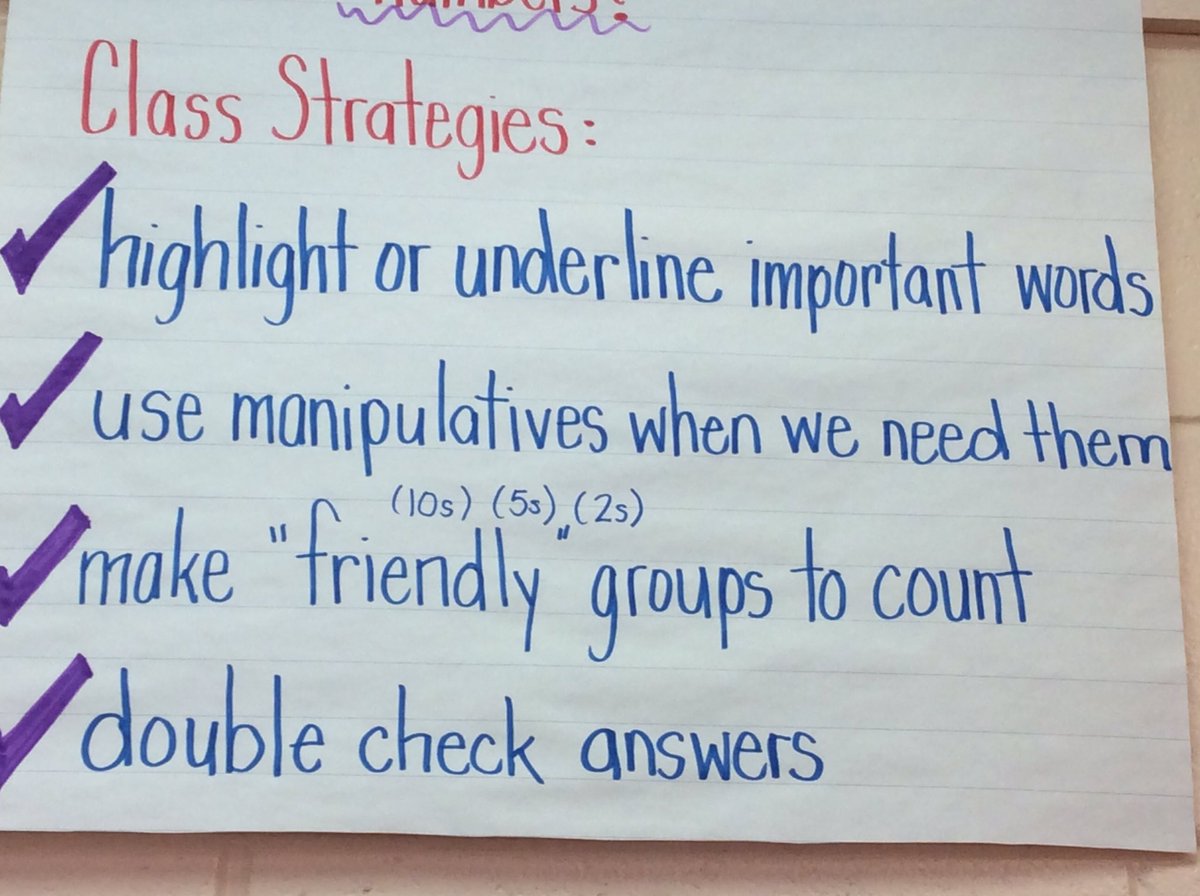 Class Strategies:
highlight or underline important words
use manipulatives when we need them
(10s) (5s) (2s)
make "friendly" groups to count
double check answers